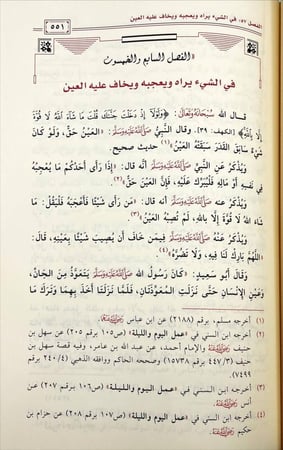 الفصل ٥٧: في الشيء يراه ويعجبه ويخاف عليه العين
٥٥١
الفصل السابع والخمسون
في الشيء يراه ويعجبه ويخاف عليه العين
قال الله سُبْحَانَهُ وَتَعَالَى: ﴿وَلَوْلَا إِذْ دَخَلْتَ جَنَّتَكَ قُلْتَ مَا شَاءَ اللَّهُ لَا قُوَّةَ
إِلَّا بِاللَّهِ﴾ [الكهف: ٣٩]. وقال النَّبِيُّ ﷺ: «العَيْنُ حَقٌّ، وَلَوْ كَانَ
شَيْءٌ سابَقَ القَدَرَ سَبَقَتْهُ العَيْنُ»(١) حديث صحيح.
ويُذْكَرُ عَنِ النَّبِيِّ ﷺ أنه قال: «إِذَا رَأَى أَحَدُكُمْ مَا يُعْجِبُهُ
فِي نَفْسِهِ أَوْ مَالِهِ فَلْيُبَرِّكْ عَلَيْهِ، فَإِنَّ العَيْنَ حَقٌّ»(٢).
ويُذْكَرُ عنه ﷺ أنه قال: «مَن رَأَى شَيْئًا فَأَعْجَبَهُ فَلْيَقُلْ: مَا
شَاءَ اللَّهُ لَا قُوَّةَ إِلَّا بِاللَّهِ، لَمْ تُصِبْهُ العَيْنُ»(٣).
ويُذْكَرُ عَنْهُ ﷺ فِيمَن خَافَ أَن يُصِيبَ شَيْئًا بِعَيْنِهِ، قَالَ:
«اللَّهُمَّ بَارِكْ لَنَا فِيهِ، وَلَا تَضُرَّهُ»(٤).
وَقَالَ أَبو سَعِيدٍ: «كَانَ رَسُولُ اللَّهِ ﷺ يَتَعَوَّذُ مِنَ الجَانِّ،
وَعَيْنِ الإِنْسَانِ حَتَّى نَزَلَتِ المُعَوِّذَتَانِ، فَلَمَّا نَزَلَتَا أَخَذَ بِهِمَا وَتَرَكَ مَا
(١) أخرجه مسلم، برقم (٢١٨٨) عن ابن عباس
(٢) أخرجه ابن السني في «عمل اليوم والليلة» (ص١٠٥ برقم ٢٠٥) عن سهل بن
حنيف والإمام أحمد، عن عبد الله بن عامر، وفيه قصة سهل بن
حنيف (٤٤٧/٣ برقم ١٥٧٣٨) وصححه الحاكم ووافقه الذهبي (٢٤٠/٤ برقم
٧٤٩٩).
(٣) أخرجه ابن السني في «عمل اليوم والليلة» (ص١٠٦ برقم ٢٠٧) عن
أنس
(٤) أخرجه ابن السني في «عمل اليوم والليلة» (ص١٠٧ برقم ٢٠٨) عن حزام بن
حكيم